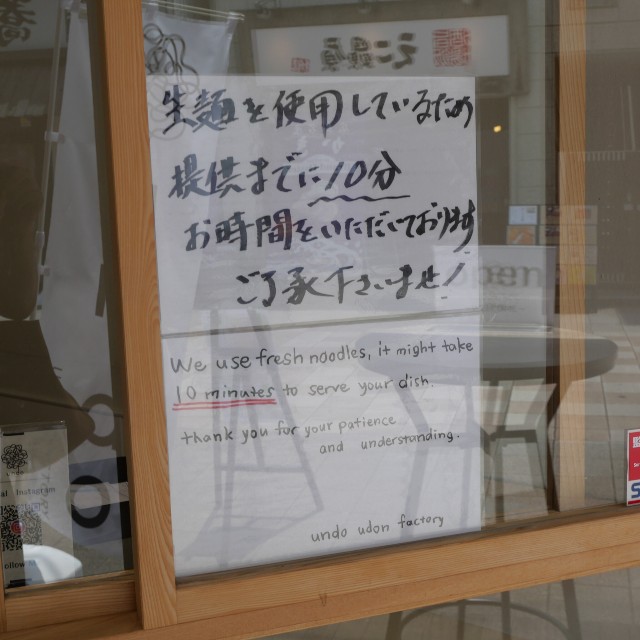 生麺を使用しているため
提供までに10分
お時間をいただいております
ご了承下さいませ!
We use fresh noodles, it might take
10 minutes to serve your dish.
thank you for your patience
and understanding.
undo udon factory
Instagram